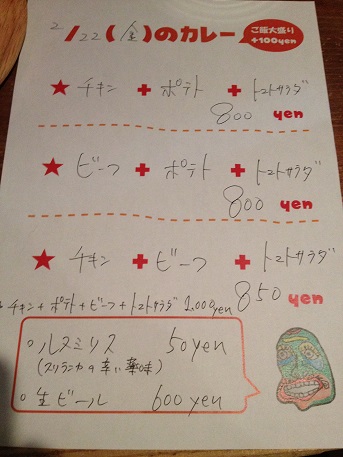 2/22(金)のカレー
ご飯大盛り
+100yen
★ チキン + ポテト + トマトサラダ
800 yen
★ ビーフ + ポテト + トマトサラダ
800 yen
★ チキン + ビーフ + トマトサラダ
850 yen
チキン+ポテト+ビーフ+トマトサラダ 1,000yen
○ルヌミリス 50yen
(スリランカの辛い薬味)
○生ビール 600yen